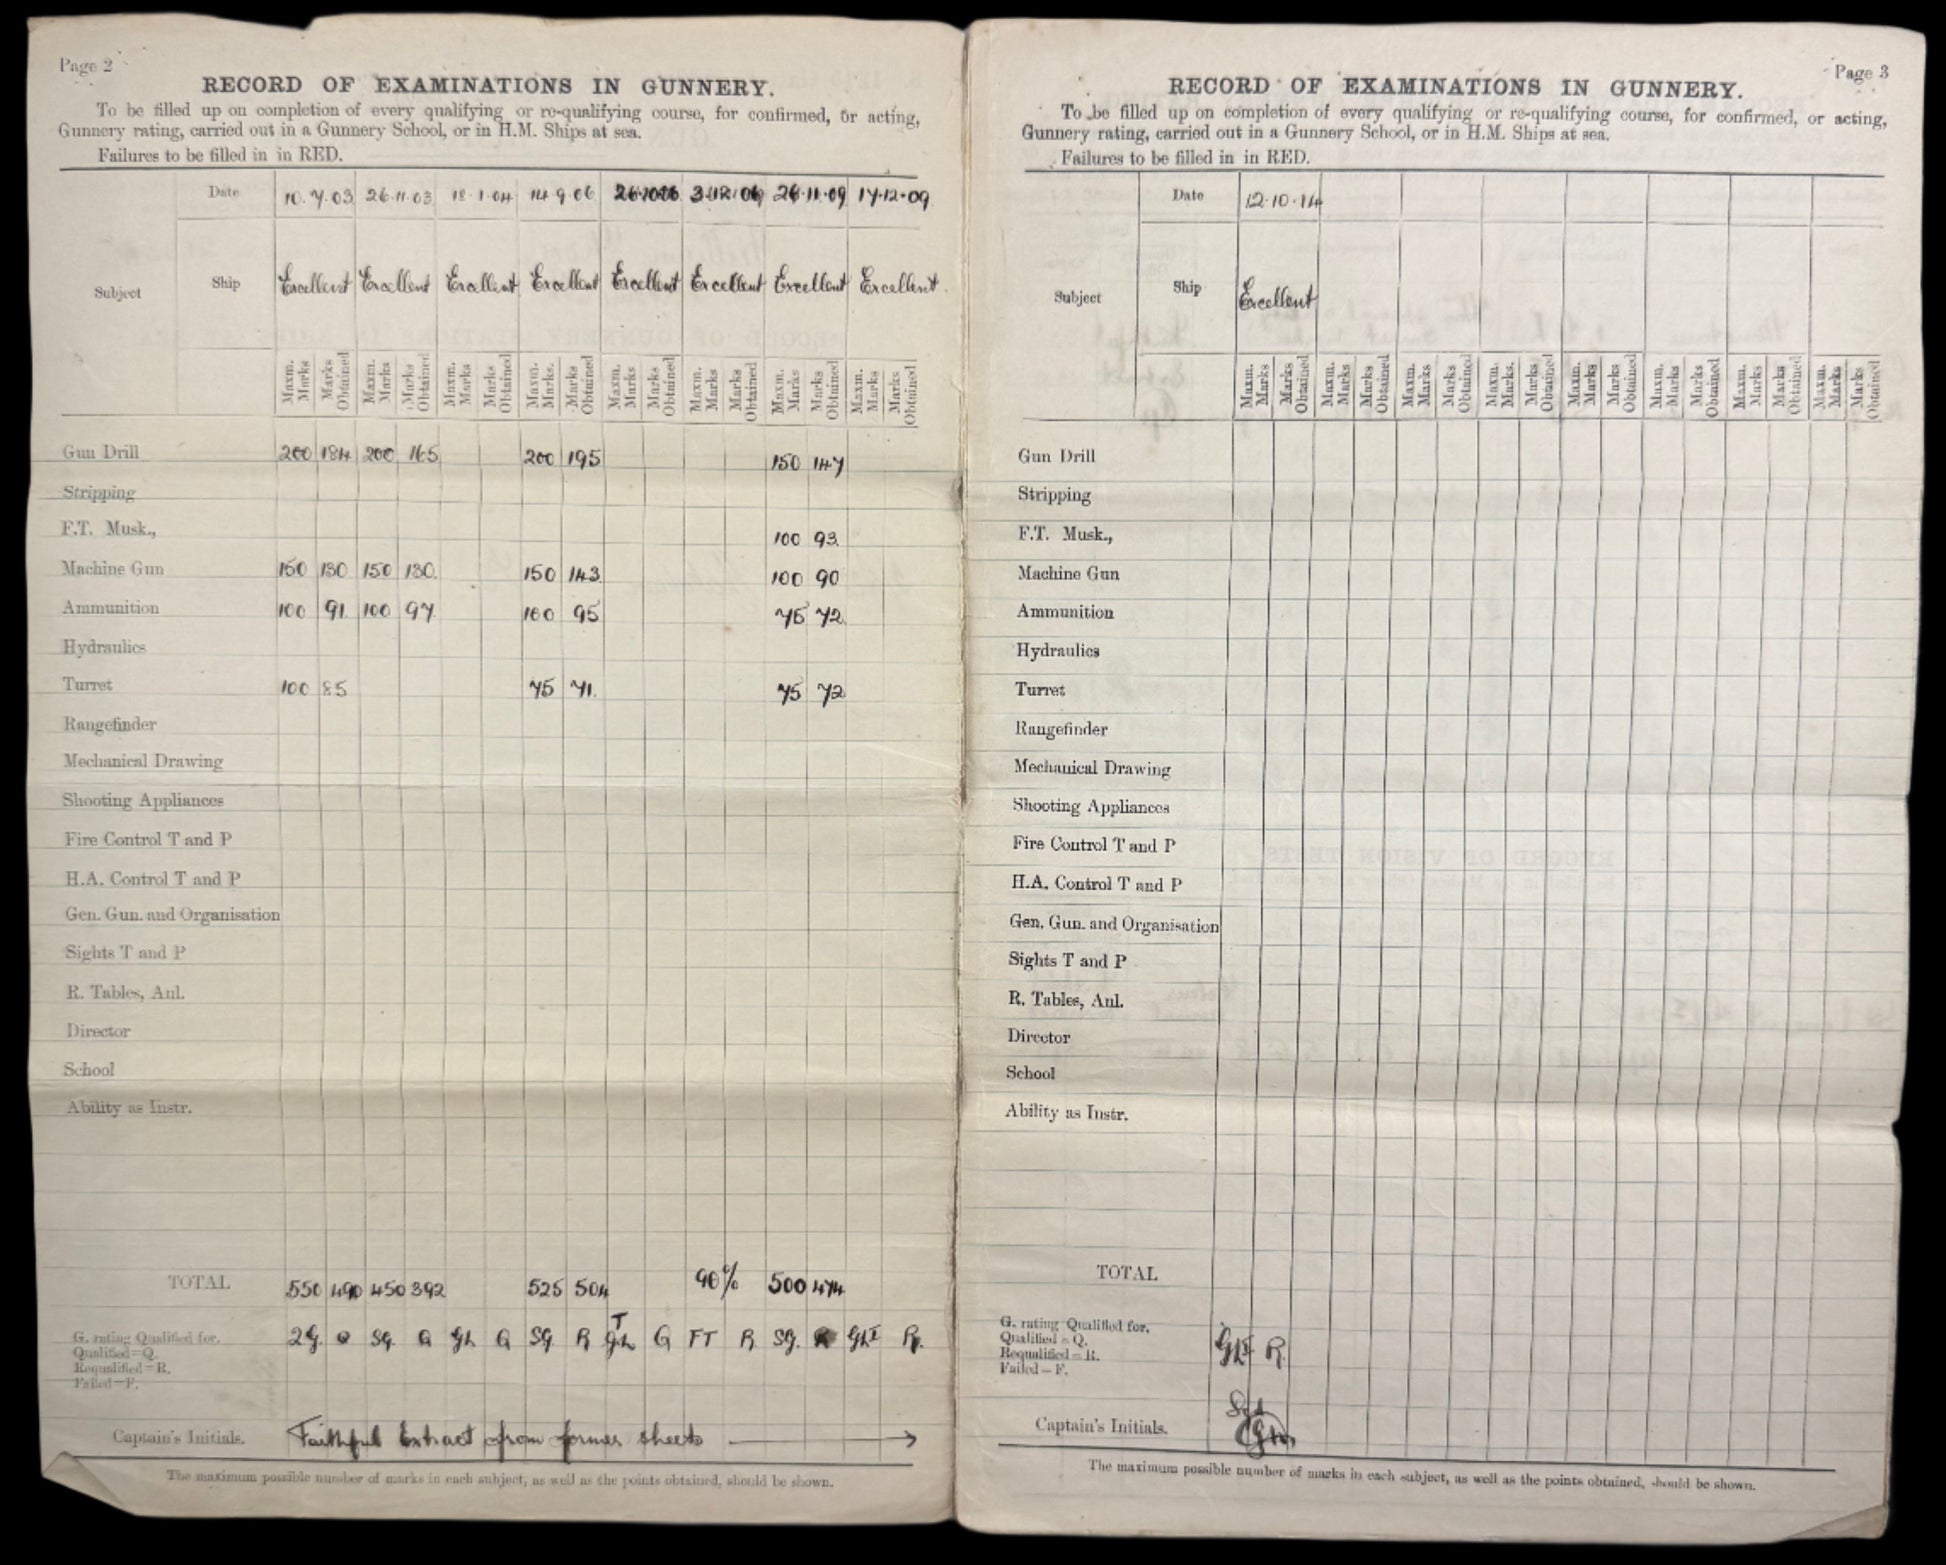 Page 2
RECORD OF EXAMINATIONS IN GUNNERY.
To be filled up on completion of every qualifying or re-qualifying course, for confirmed, or acting,
Gunnery rating, carried out in a Gunnery School, or in H.M. Ships at sea.
Failures to be filled in in RED.
Date 10.7.03 26.11.03 18.1.04 14.9.06 3.12.06 26.11.09 17.12.09
Subject Ship Excellent Excellent Excellent Excellent Excellent Excellent Excellent Excellent
Maxm. Marks Marks Obtained Maxm. Marks Marks Obtained Maxm. Marks Marks Obtained Maxm. Marks. Marks Obtained Maxm. Marks Marks Obtained Maxm. Marks Marks Obtained Maxm. Marks Marks Obtained Maxm. Marks Marks Obtained
Gun Drill 200 184 200 165 200 195 150 147
Stripping
F.T. Musk., 100 93
Machine Gun 150 130 150 130 150 143 100 90
Ammunition 100 91 100 97 100 95 75 72
Hydraulics
Turret 100 85 75 71 75 72
Rangefinder
Mechanical Drawing
Shooting Appliances
Fire Control T and P
H.A. Control T and P
Gen. Gun. and Organisation
Sights T and P
R. Tables, Anl.
Director
School
Ability as Instr.
TOTAL 550 490 450 392 525 504 90% 500 474
G. rating Qualified for. 2G. SG. Q GL Q SG R Q FT R SG. GLI R.
Qualified=Q.
Requalified=R.
Failed=F.
Captain's Initials. Faithful Extract from former sheets
The maximum possible number of marks in each subject, as well as the points obtained, should be shown.
Page 3
RECORD OF EXAMINATIONS IN GUNNERY.
To be filled up on completion of every qualifying or re-qualifying course, for confirmed, or acting,
Gunnery rating, carried out in a Gunnery School, or in H.M. Ships at sea.
Failures to be filled in in RED.
Date 12.10.14
Subject Ship Excellent
Maxm. Marks Marks Obtained Maxm. Marks Marks Obtained Maxm. Marks Marks Obtained Maxm. Marks. Marks Obtained Maxm. Marks Marks Obtained Maxm. Marks Marks Obtained Maxm. Marks Marks Obtained Maxm. Marks Marks Obtained
Gun Drill
Stripping
F.T. Musk.,
Machine Gun
Ammunition
Hydraulics
Turret
Rangefinder
Mechanical Drawing
Shooting Appliances
Fire Control T and P
H.A. Control T and P
Gen. Gun. and Organisation
Sights T and P
R. Tables, Anl.
Director
School
Ability as Instr.
TOTAL
G. rating Qualified for. GLI R.
Qualified=Q.
Requalified=R.
Failed=F.
Captain's Initials.
The maximum possible number of marks in each subject, as well as the points obtained, should be shown.